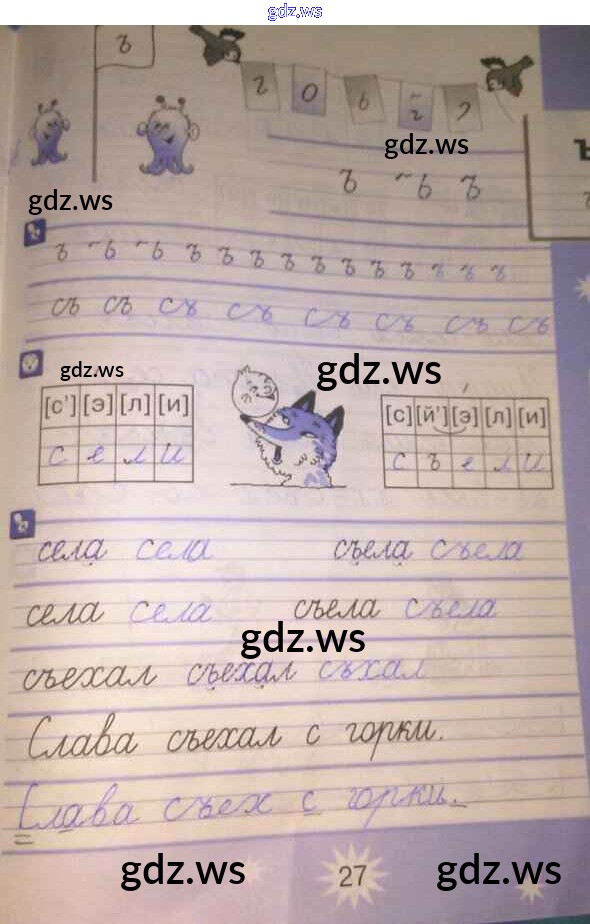 gdz.ws
ъ
gdz.ws
ъ ъ ъ
ъ
gdz.ws
ъ ъ ъ ъ ъ ъ ъ ъ ъ ъ ъ ъ ъ ъ
съ съ съ съ съ съ съ съ
gdz.ws
gdz.ws
[с'] [э] [л] [и]
с е л и
[с] [й'] [э] [л] [и]
с ъ е л и
села села съела съела
села села съела съела
gdz.ws
съехал съехал съхал
Слава съехал с горки.
Слава съех с горки.
gdz.ws
27
gdz.ws